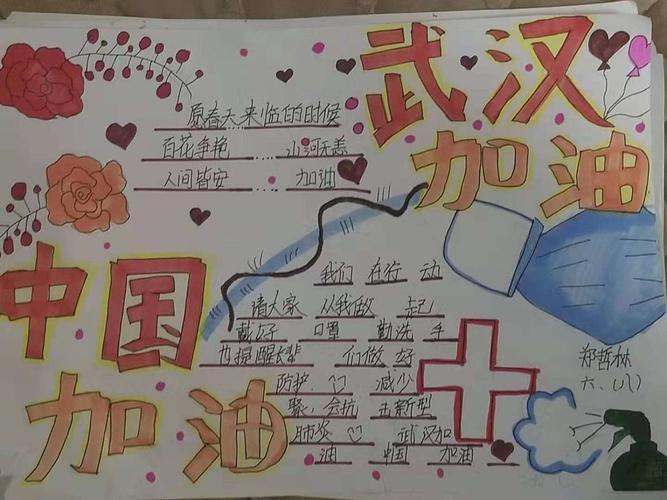 武汉
加油
原春天来临的时候
百花争艳....山河无恙
人间皆安....加油
中国
加油
我们 在行 动
请大家 从我做 起!
戴好 口罩 勤洗 手
也提醒长辈 们做 好
防护. 减少
聚.会抗 击新型
肺炎 武汉加
油 中国 加油
郑哲林
六.(八)